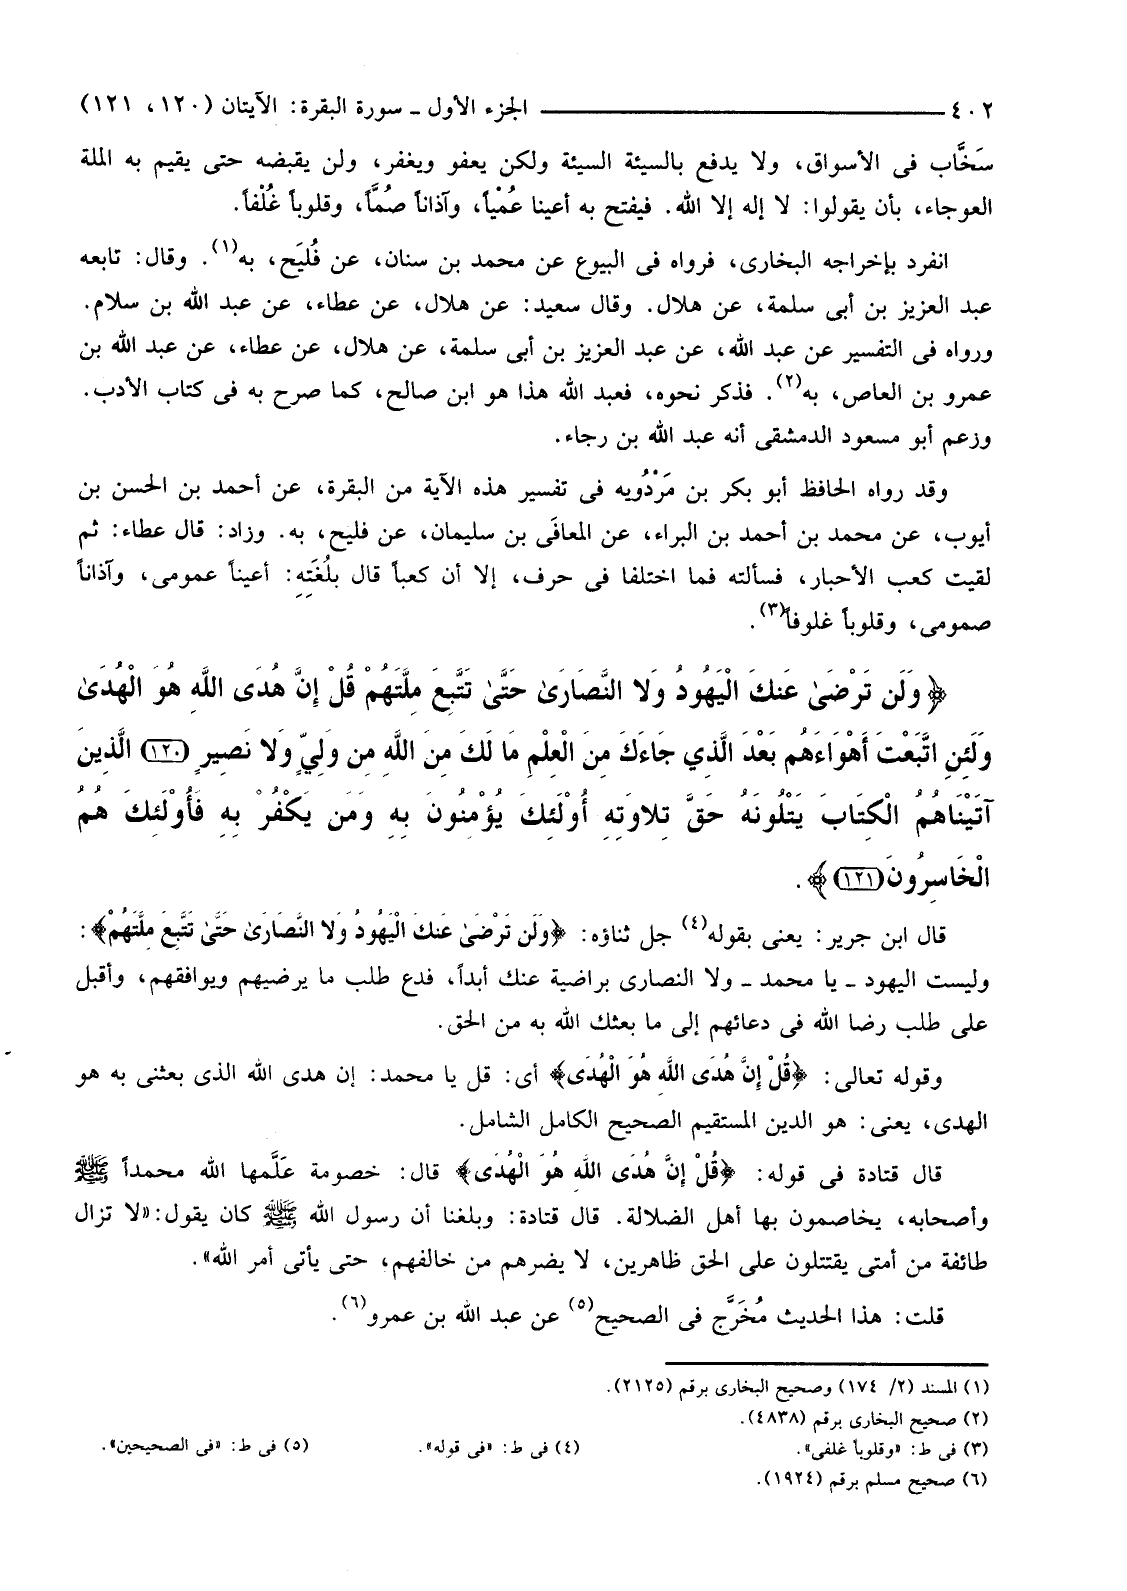 ٤٠٢ ــــــــ الجزء الأول ـ سورة البقرة: الآيتان (١٢٠، ١٢١)
سَخَّاب فى الأسواق، ولا يدفع بالسيئة السيئة ولكن يعفو ويغفر، ولن يقبضه حتى يقيم به الملة
العوجاء، بأن يقولوا: لا إله إلا الله. فيفتح به أعينا عُمْياً، وآذاناً صُمّاً، وقلوباً غُلْفاً.
انفرد بإخراجه البخارى، فرواه فى البيوع عن محمد بن سنان، عن فُلَيح، به(١). وقال: تابعه
عبد العزيز بن أبى سلمة، عن هلال. وقال سعيد: عن هلال، عن عطاء، عن عبد الله بن سلام.
ورواه فى التفسير عن عبد الله، عن عبد العزيز بن أبى سلمة، عن هلال، عن عطاء، عن عبد الله بن
عمرو بن العاص، به(٢). فذكر نحوه، فعبد الله هذا هو ابن صالح، كما صرح به فى كتاب الأدب.
وزعم أبو مسعود الدمشقى أنه عبد الله بن رجاء.
وقد رواه الحافظ أبو بكر بن مَرْدُويه فى تفسير هذه الآية من البقرة، عن أحمد بن الحسن بن
أيوب، عن محمد بن أحمد بن البراء، عن المعافَى بن سليمان، عن فليح، به. وزاد: قال عطاء: ثم
لقيت كعب الأحبار، فسألته فما اختلفا فى حرف، إلا أن كعباً قال بلُغَتِهِ: أعيناً عمومى، وآذاناً
صمومى، وقلوباً غلوفاً(٣).
﴿ وَلَن تَرْضَىٰ عَنكَ الْيَهُودُ وَلا النَّصَارَىٰ حَتَّىٰ تَتَّبِعَ مِلَّتَهُمْ قُلْ إِنَّ هُدَى اللَّهِ هُوَ الْهُدَىٰ
وَلَئِنِ اتَّبَعْتَ أَهْوَاءَهُم بَعْدَ الَّذِي جَاءَكَ مِنَ الْعِلْمِ مَا لَكَ مِنَ اللَّهِ مِن وَلِيٍّ وَلا نَصِيرٍ (١٢٠) الَّذِينَ
آتَيْنَاهُمُ الْكِتَابَ يَتْلُونَهُ حَقَّ تِلاوَتِهِ أُوْلَئِكَ يُؤْمِنُونَ بِهِ وَمَن يَكْفُرْ بِهِ فَأُوْلَئِكَ هُمُ
الْخَاسِرُونَ (١٢١) ﴾ .
قال ابن جرير: يعنى بقوله(٤) جل ثناؤه: ﴿وَلَن تَرْضَىٰ عَنكَ الْيَهُودُ وَلا النَّصَارَىٰ حَتَّىٰ تَتَّبِعَ مِلَّتَهُمْ﴾:
وليست اليهود ـ يا محمد ـ ولا النصارى براضية عنك أبداً، فدع طلب ما يرضيهم ويوافقهم، وأقبل
على طلب رضا الله فى دعائهم إلى ما بعثك الله به من الحق.
وقوله تعالى: ﴿قُلْ إِنَّ هُدَى اللَّهِ هُوَ الْهُدَى﴾ أى: قل يا محمد: إن هدى الله الذى بعثنى به هو
الهدى، يعنى: هو الدين المستقيم الصحيح الكامل الشامل.
قال قتادة فى قوله: ﴿قُلْ إِنَّ هُدَى اللَّهِ هُوَ الْهُدَى﴾ قال: خصومة عَلَّمها الله محمداً ﷺ
وأصحابه، يخاصمون بها أهل الضلالة. قال قتادة: وبلغنا أن رسول الله ﷺ كان يقول: «لا تزال
طائفة من أمتى يقتتلون على الحق ظاهرين، لا يضرهم من خالفهم، حتى يأتى أمر الله».
قلت: هذا الحديث مُخَرَّج فى الصحيح(٥) عن عبد الله بن عمرو(٦).
(١) المسند (٢/ ١٧٤) وصحيح البخارى برقم (٢١٢٥).
(٢) صحيح البخارى برقم (٤٨٣٨).
(٣) فى ط: «وقلوباً غلفى». (٤) فى ط: «فى قوله». (٥) فى ط: «فى الصحيحين».
(٦) صحيح مسلم برقم (١٩٢٤).